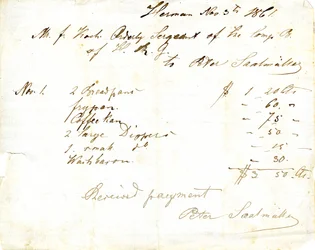 Herman Nov 3th 1861
Mr. J. Orderly Sergeant of the Comp. B.
of
to Peter Sadtmüller
Nov. 1. 2 Breadpans $ 1 20 Cts
frypan - 60 -
Coffee Kan - 75 -
2 large Dippers - 50 -
1 small do - 15 -
Washbason - 30 -
$ 3 50 Cts.
Received payment
Peter